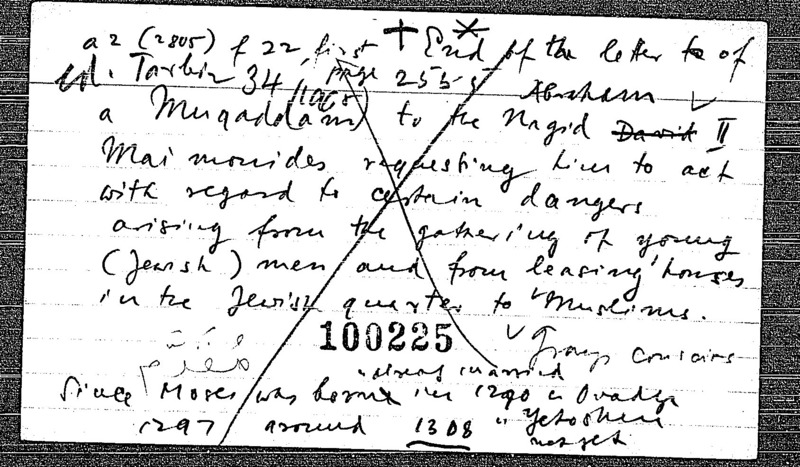 a 2 (2805) f 22, first + End of the letter to of
ed. Tarbiz 34 (1965) page 255-5 Abraham
a Muqaddam to the Nagid David II
Maimonides requesting him to act
with regard to certain dangers
arising from the gathering of young
(Jewish) men and from leasing houses
in the Jewish quarter to Muslims.
100225
Group contains
already married
Since Moses was born in 1290 Ovadya
1297 around 1308
not yet